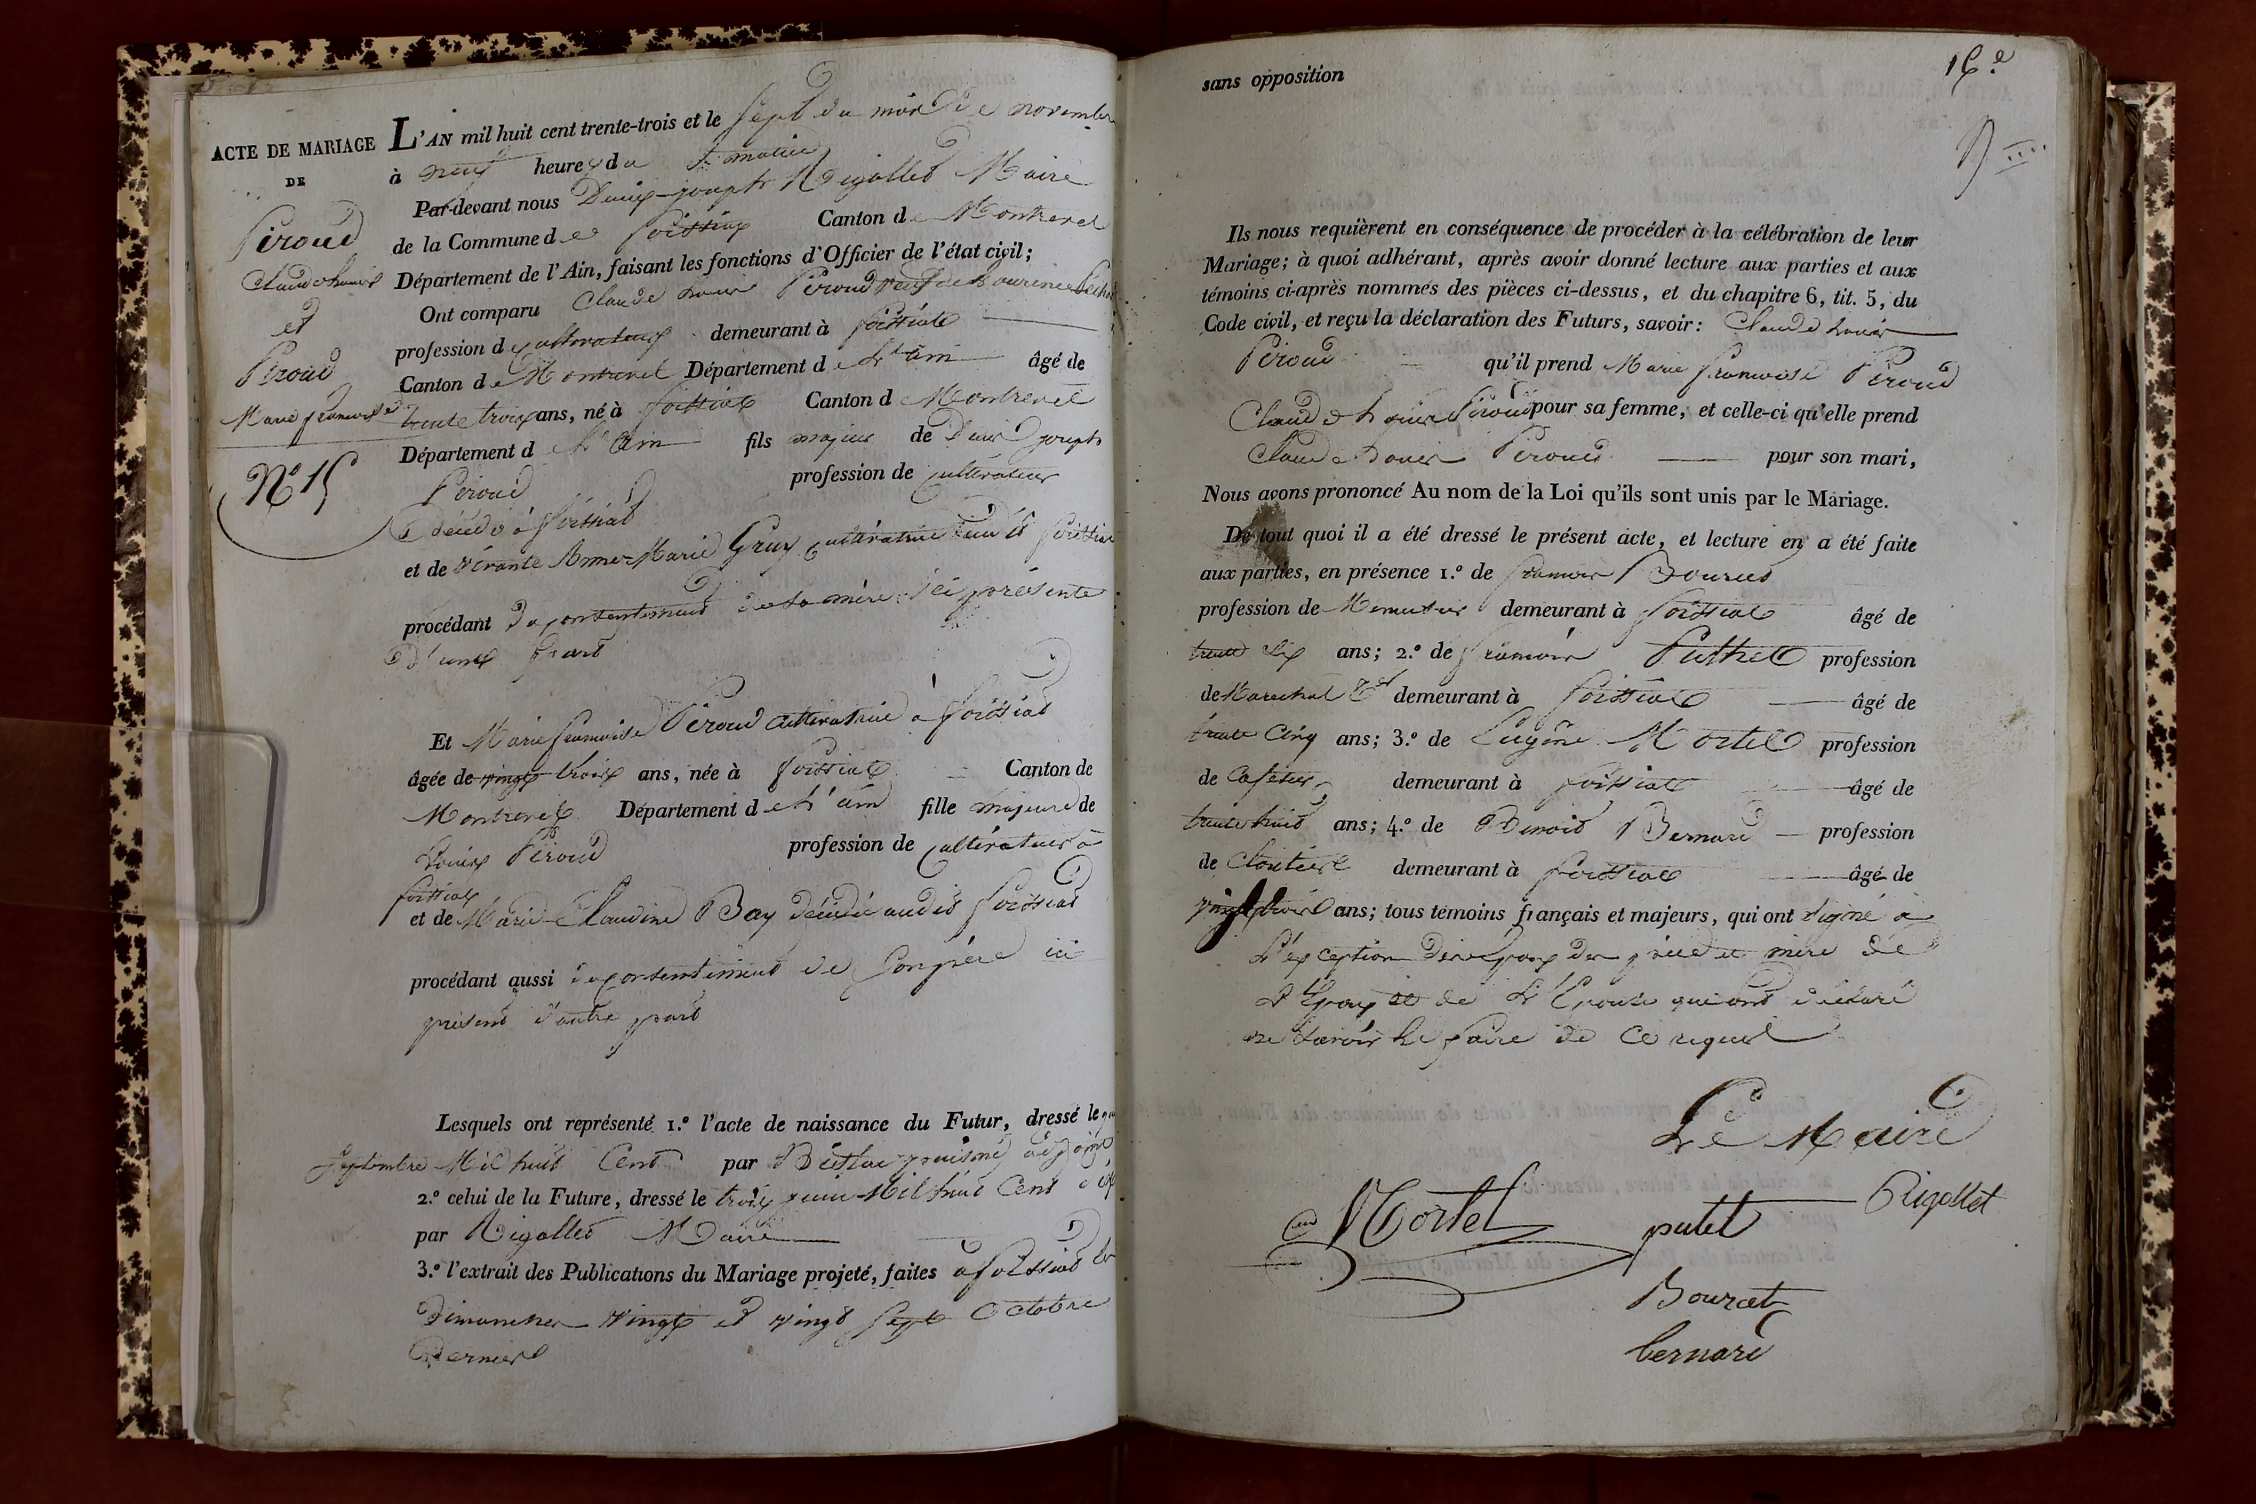 ACTE DE MARIAGE
DE
Péroud
Claude Louis
et
Péroud
Marie françoise
N° 15
L'AN mil huit cent trente-trois et le sept du mois de novembre
à neuf heures du matin
Par-devant nous Denis joseph Rigollet Maire
de la Commune de foissiat Canton de Montrevel
Département de l'Ain, faisant les fonctions d'Officier de l'état civil;
Ont comparu Claude Louis Péroud veuf de
profession de cultivateur demeurant à foissiat
Canton de Montrevel Département de L'ain âgé de
trente trois ans, né à foissiat Canton de Montrevel
Département de L'ain fils majeur de Denis joseph
Péroud profession de cultivateur
décédé à foissiat
et de vivante Anne-Marie Gruy cultivatrice audit foissiat
procédant du consentement de sa mère ici présente
d'une part
Et Marie françoise Péroud cultivatrice à foissiat
âgée de vingt trois ans, née à foissiat Canton de
Montrevel Département de L'ain fille majeure de
Louis Péroud profession de cultivateur à
foissiat
et de Marie-Claudine Bay décédée audit foissiat
procédant aussi du consentement de son père ici
présent d'autre part
Lesquels ont représenté 1.º l'acte de naissance du Futur, dressé le
septembre Mil huit Cent par puisné adjoint
2.º celui de la Future, dressé le trois juin Mil huit Cent dix
par Rigollet Maire
3.º l'extrait des Publications du Mariage projeté, faites à foissiat les
dimanches vingt et vingt sept Octobre
dernier
16.e
sans opposition
Ils nous requièrent en conséquence de procéder à la célébration de leur
Mariage; à quoi adhérant, après avoir donné lecture aux parties et aux
témoins ci-après nommés des pièces ci-dessus, et du chapitre 6, tit. 5, du
Code civil, et reçu la déclaration des Futurs, savoir: Claude Louis
Péroud qu'il prend Marie françoise Péroud
Claude Louis Péroud pour sa femme, et celle-ci qu'elle prend
Claude Louis Péroud pour son mari,
Nous avons prononcé Au nom de la Loi qu'ils sont unis par le Mariage.
De tout quoi il a été dressé le présent acte, et lecture en a été faite
aux parties, en présence 1.º de françois Bourcet
profession de Menuisier demeurant à foissiat âgé de
trente six ans; 2.º de françois Puthet profession
de Marechal demeurant à foissiat âgé de
trente cinq ans; 3.º de Eugène Mortel profession
de Cafetier demeurant à foissiat âgé de
trente huit ans; 4.º de Benoit Bernard profession
de Cloutier demeurant à foissiat âgé de
vingt trois ans; tous témoins français et majeurs, qui ont signé à
L'exception des époux des père et mère de
L'Epoux et de L'Epouse qui ont déclaré
ne savoir le faire de ce requis
Le Maire
Rigollet
Mortel
putet
Bourcet
bernard